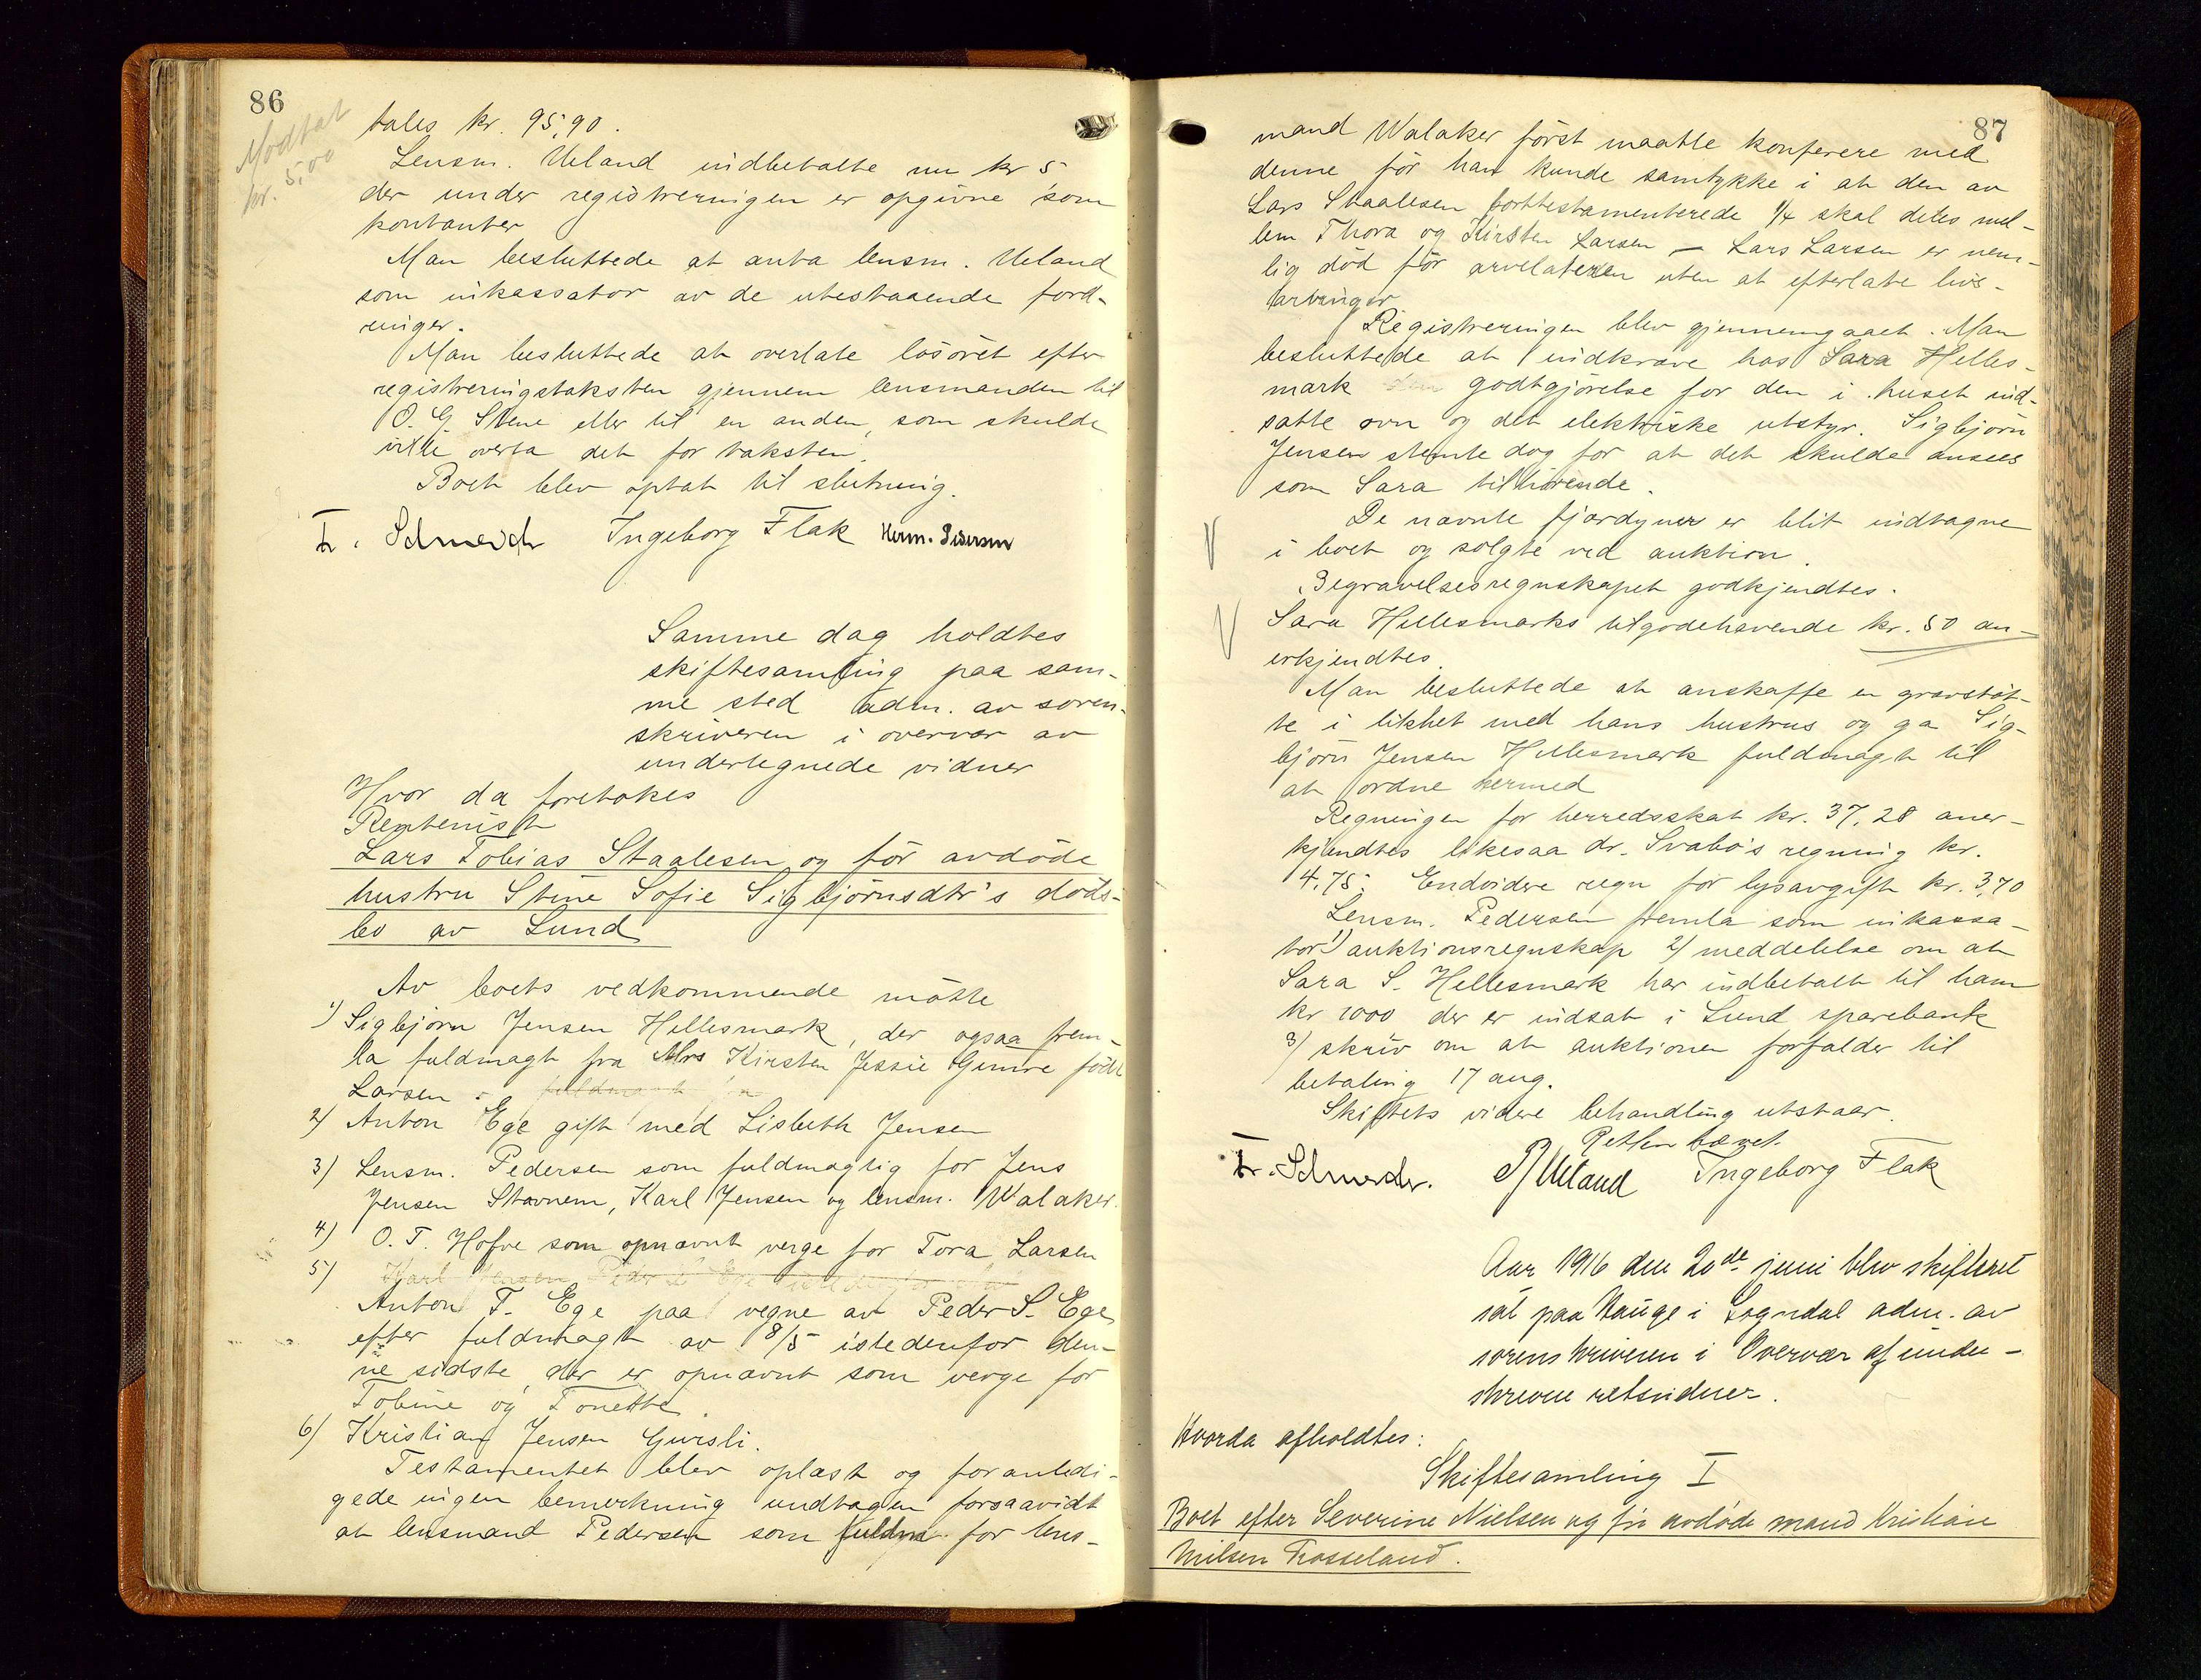 86
Modtat
kr. 5,00
tales kr. 95,90.
Lensm. Ueland indbetalte nu kr 5
der under registreringen er opgivne som
kontanter
Man besluttede at anta lensm. Ueland
som inkassator av de utestaaende ford-
ringer.
Man besluttede at overlate losöret efter
registreringstaksten gjennem lensmanden til
O. G. Stene eller til en anden, som skulde
ville overta det for taksten.
Boet blev optat til slutning.
Ingeborg Flak Herm. Pedersen
Samme dag holdtes
skiftesamling paa sam-
me sted adm. av soren-
skriveren i overvær av
undertegnede vidner
Hvor da foretokes
Rentenist
Lars Tobias Staalesen og för avdöde
hustru Stine Sofie Sigbjörnsdtr's döds-
bo av Lund
Av boets vedkommende mötte
1) Sigbjörn Jensen Hellesmark, der ogsaa frem-
la fuldmagt fra Mrs Kirsten Jessie Gimre född
Larsen
2) Anton Ege gift med Lisbeth Jensen
3) Lensm. Pedersen som fuldmagtig for Jens
Jensen Stavnem, Karl Jensen og lensm. Walaker.
4) O. T. Hofve som opnævnt verge for Tora Larsen
5)
Anton T. Ege paa vegne av Peder S. Ege
efter fuldmagt av 8/5 istedenfor den-
ne sidste, der er opnævnt som verge for
Tobine og Tonette.
6) Kristian Jensen Gursli.
Testamentet blev oplæst og foranledi-
gede ingen bemerkning undtagen forsaavidt
at lensmand Pedersen som fuldm. for lens-
87
mand Walaker först maatte konferere med
denne för han kunde samtykke i at den av
Lars Staalesen borttestamenterede 1/4 skal deles mel-
lem Thora og Kirsten Larsen – Lars Larsen er nem-
lig död för arvelateren uten at efterlate livs-
arvinger
Registreringen blev gjennemgaaet. Man
besluttede at indkræve hos Sara Helles-
mark godtgjörelse for den i huset ind-
satte ovn og det elektriske utstyr. Sigbjörn
Jensen stemte dog for at det skulde ansees
som Sara tilhörende.
De nævnte fjærdyner er blit indtagne
i boet og solgte ved auktion.
Begravelsesregnskapet godkjendtes.
Sara Hellesmarks tilgodehavende kr. 50 an-
erkjendtes.
Man besluttede at anskaffe en gravstöt-
te i likhet med hans hustrus og ga Sig-
björn Jensen Hellesmark fuldmagt til
at ordne hermed
Regningen for herredsskat kr. 37,28 aner-
kjendtes likesaa dr. Svabö's regning kr.
4,75. Endvidere regn for lysavgift kr. 3,70
Lensm. Pedersen fremla som inkassa-
tor 1) auktionsregnskap 2) meddelelse om at
Sara S. Hellesmark har indbetalt til ham
kr 1000 der er indsat i Lund sparebank
3) skriv om at auktionen forfalder til
betaling 17 aug.
Skiftets videre behandling utstaar.
Retten hævet.
Ueland Ingeborg Flak
Aar 1916 den 20de juni blev skifteret
sat paa Hauge i Sogndal adm. av
sorenskriveren i Overvær af under-
skrevne retsvidner.
Hvorda afholdtes:
Skiftesamling I
Boet efter Severine Nielsen og för avdöde mand Kristian
Nielsen Rosseland.